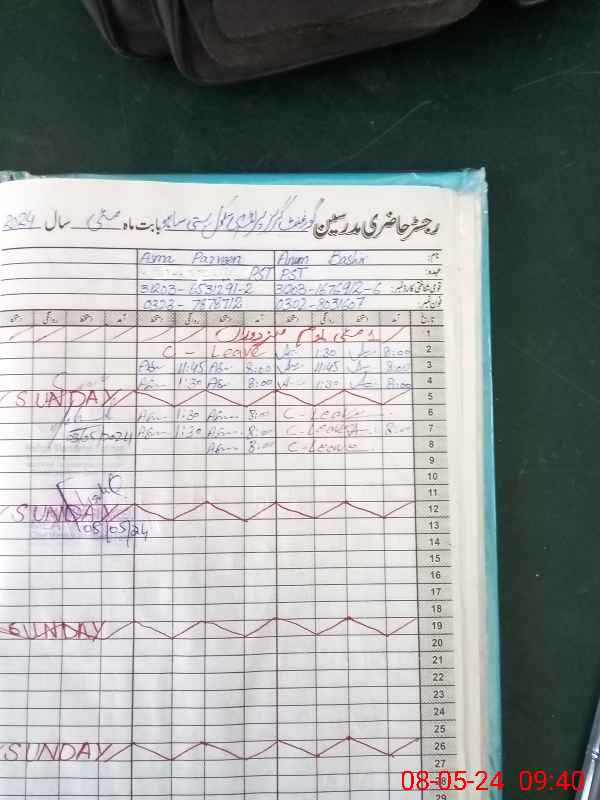 رجسٹر حاضری مدرسین گورنمنٹ گرلز پرائمری سکول بستی بابت ماہ مئی سال 2024
نام: Anum Bashir Asma Parveen
عہدہ: PST PST
قومی شناختی کارڈ نمبر: 31203-1676912-6 31203-6531291-2
فون نمبر: 0302-8031607 0323-7878712
تاریخ آمد دستخط روانگی دستخط آمد دستخط روانگی دستخط آمد دستخط روانگی دستخط
1 یکم مئی یوم مزدوراں
2 8:00 1:30 C - Leave
3 8:00 11:45 8:00 11:45
4 8:00 1:30 8:00 1:30
5 SUNDAY
6 C-Leave 8:00 1:30
7 8:00 C-Leave 8:00 1:30
8 C-Leave 8:00
9
10
11
12 SUNDAY
13 08/05/24
14
15
16
17
18
19 SUNDAY
20
21
22
23
24
25
26 SUNDAY
27
28
29
08-05-24 09:40